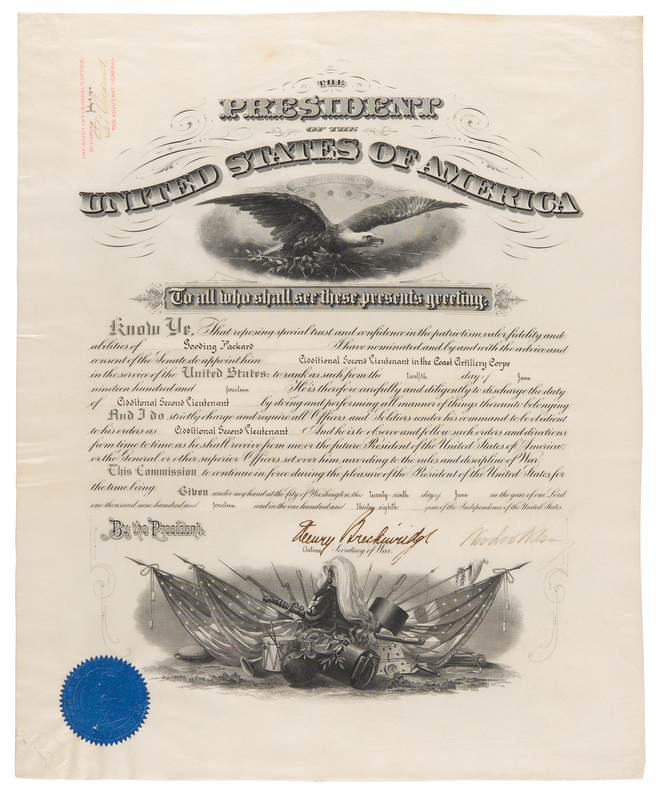 THE ADJUTANT GENERAL'S OFFICE.
RECORDED
THE ADJUTANT GENERAL.
THE
PRESIDENT
OF THE
UNITED STATES OF AMERICA
To all who shall see these presents greeting:
Know Ye, That reposing special trust and confidence in the patriotism, valor, fidelity and
abilities of Gooding Packard I have nominated and by and with the advice and
consent of the Senate do appoint him Additional Second Lieutenant in the Coast Artillery Corps
in the service of the United States: to rank as such from the twelfth day of June
nineteen hundred and fourteen. He is therefore carefully and diligently to discharge the duty
of Additional Second Lieutenant by doing and performing all manner of things thereunto belonging.
And I do strictly charge and require all Officers and Soldiers under his command to be obedient
to his orders as Additional Second Lieutenant. And he is to observe and follow such orders and directions
from time to time, as he shall receive from me, or the future President of the United States of America,
or the General or other superior Officers set over him, according to the rules and discipline of War.
This Commission to continue in force during the pleasure of the President of the United States for
the time being.
Given under my hand at the City of Washington, this twenty-ninth day of June in the year of our Lord
one thousand nine hundred and fourteen and in the one hundred and thirty eighth year of the Independence of the United States.
By the President:
Henry Breckinridge
Woodrow Wilson
Acting Secretary of War.